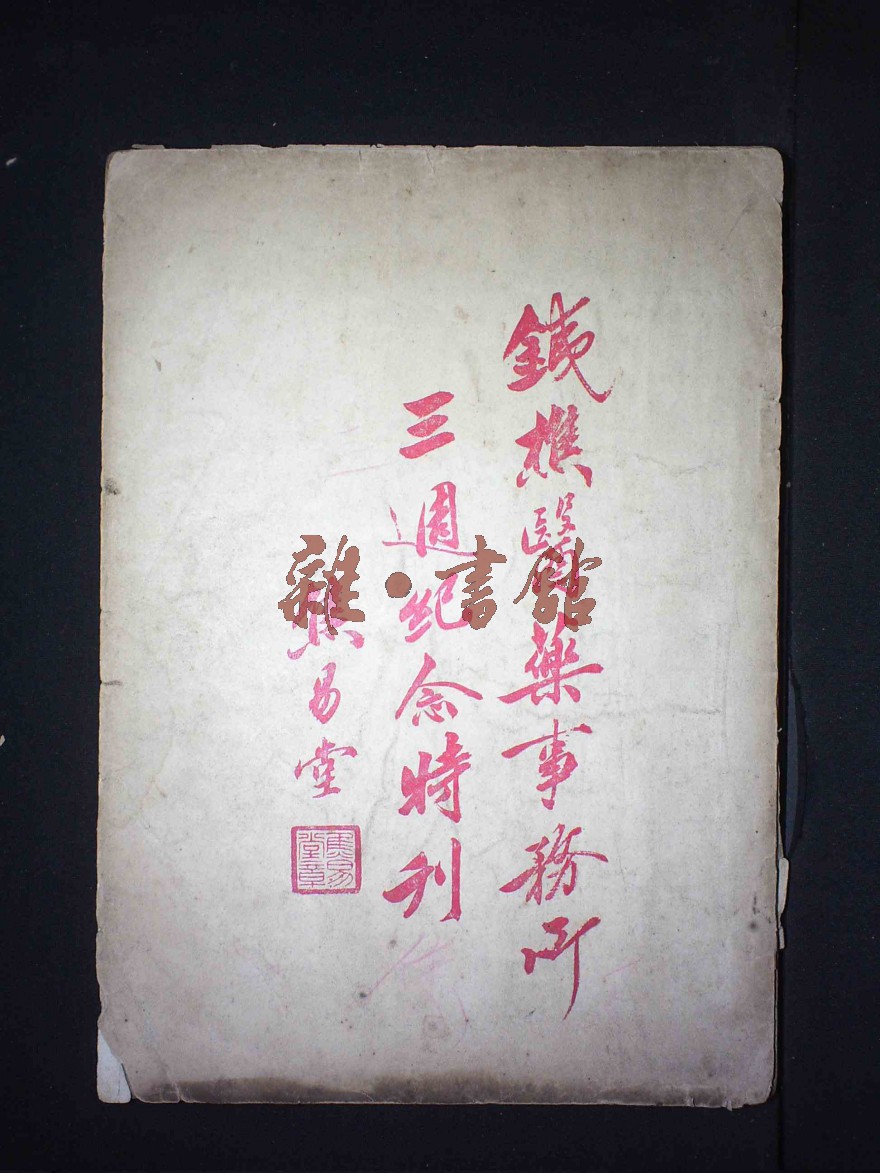 銕樵醫藥事務所
三週紀念特刊
焦易堂
焦易堂章
雜·書館